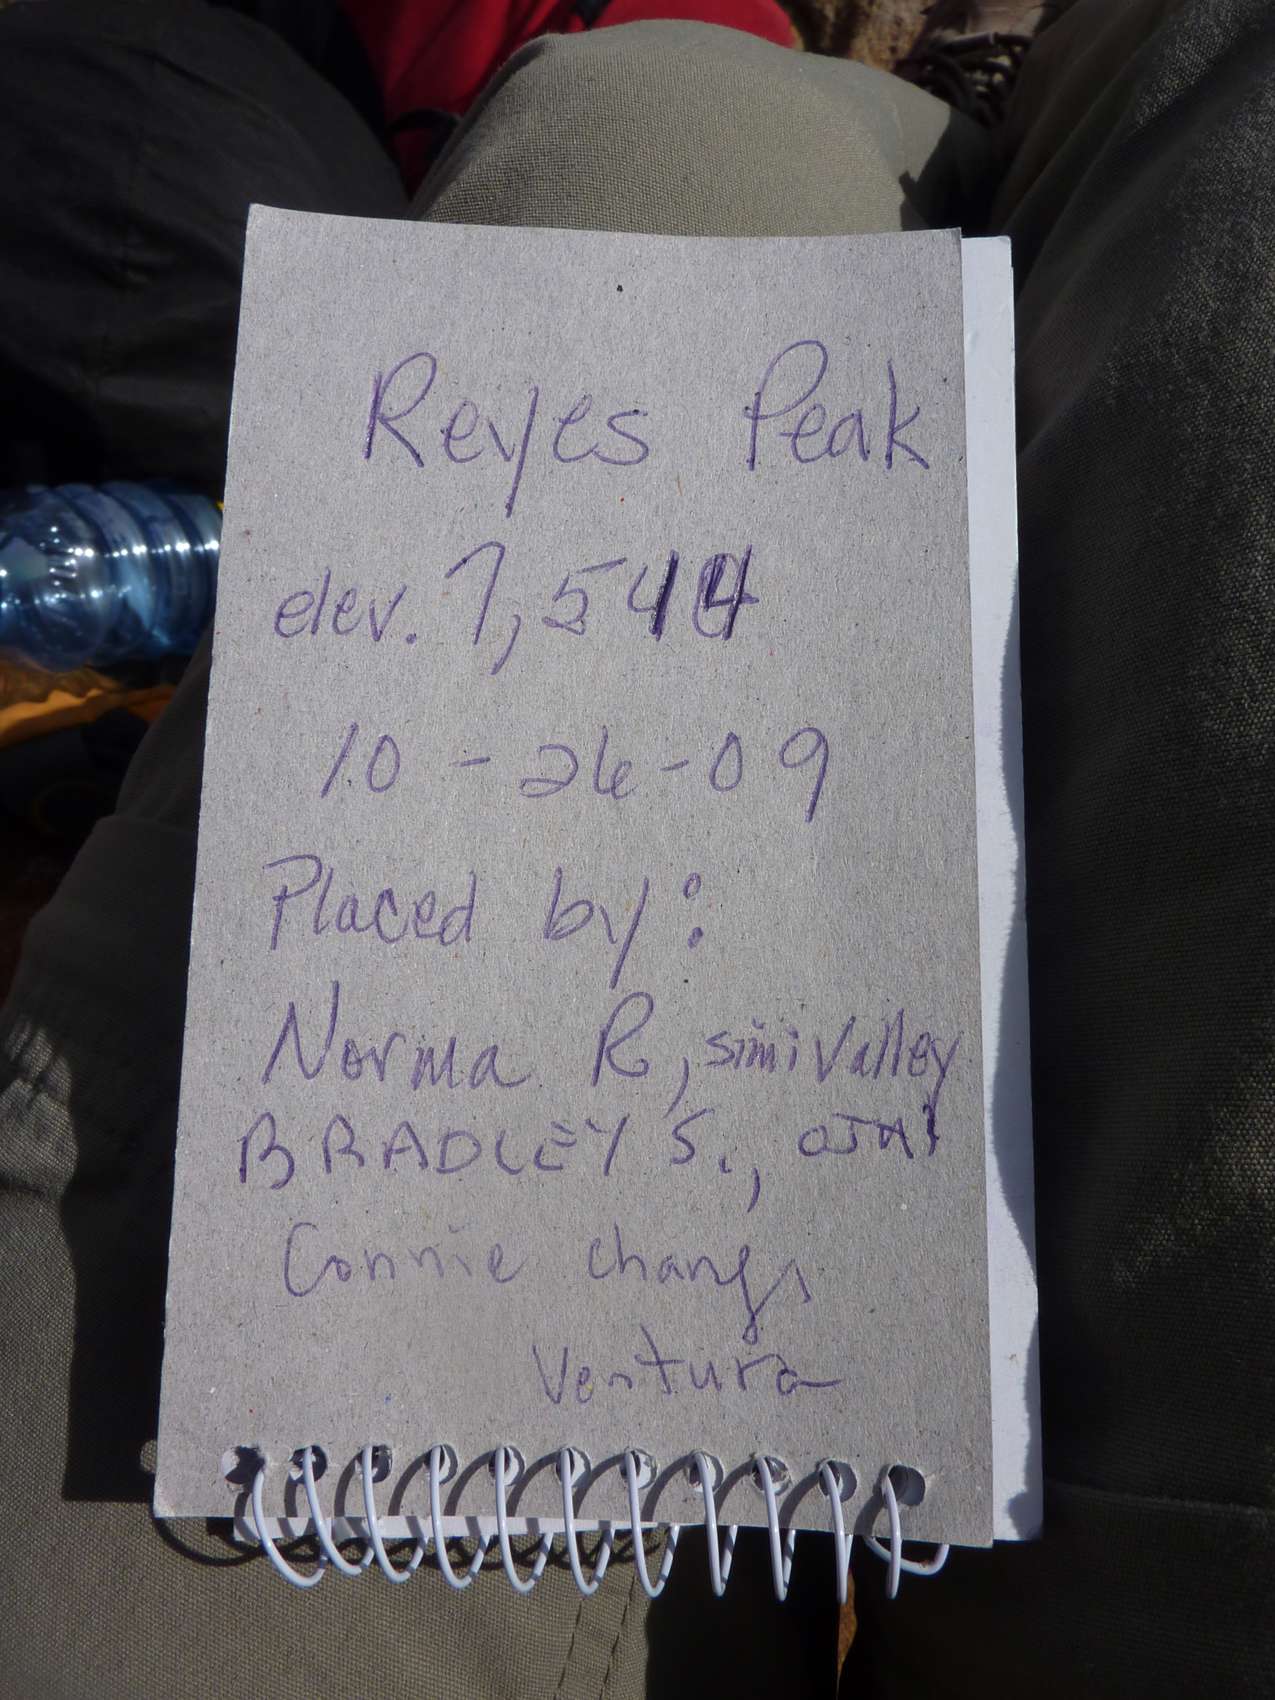 Reyes Peak
elev. 7,544
10-26-09
Placed by:
Norma R, simi Valley
BRADLEY S., OJAI
Connie Chang,
Ventura